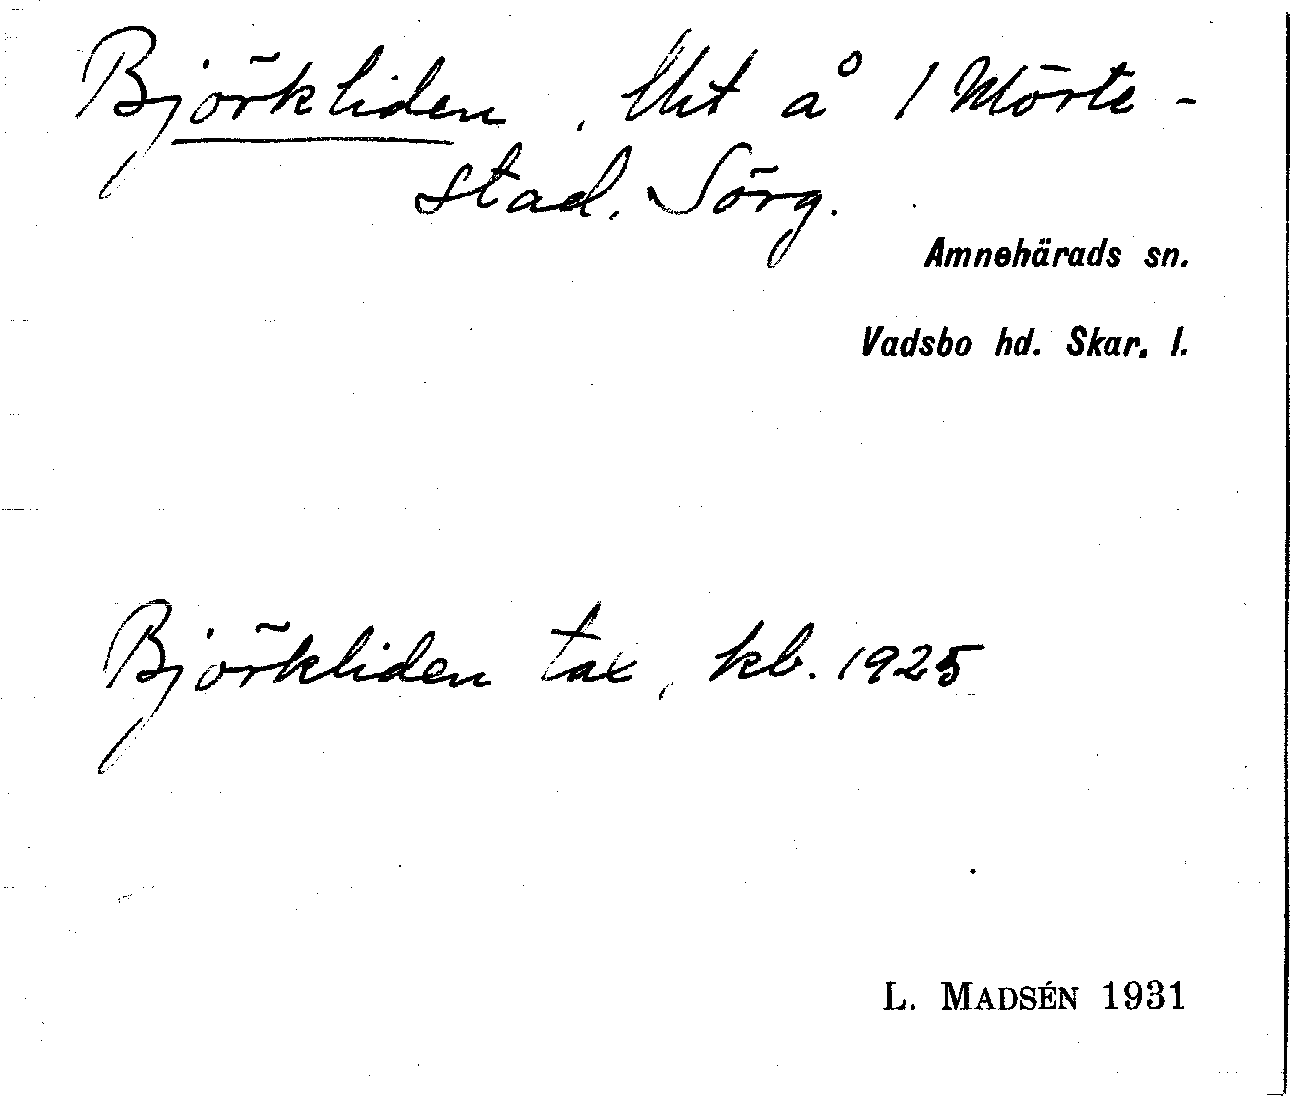 Björkliden, lht å 1 Mörte-
stad, Sörg.
Amnehärads sn.
Vadsbo hd. Skar. l.
Björkliden tax, kb. 1925
L. MADSÉN 1931